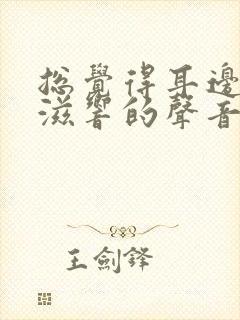 總覺得耳邊
滋響的聲音
王劍鋒